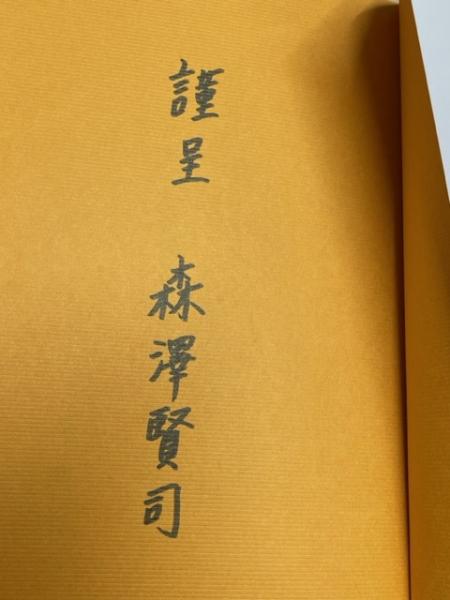 謹呈　森澤賢司